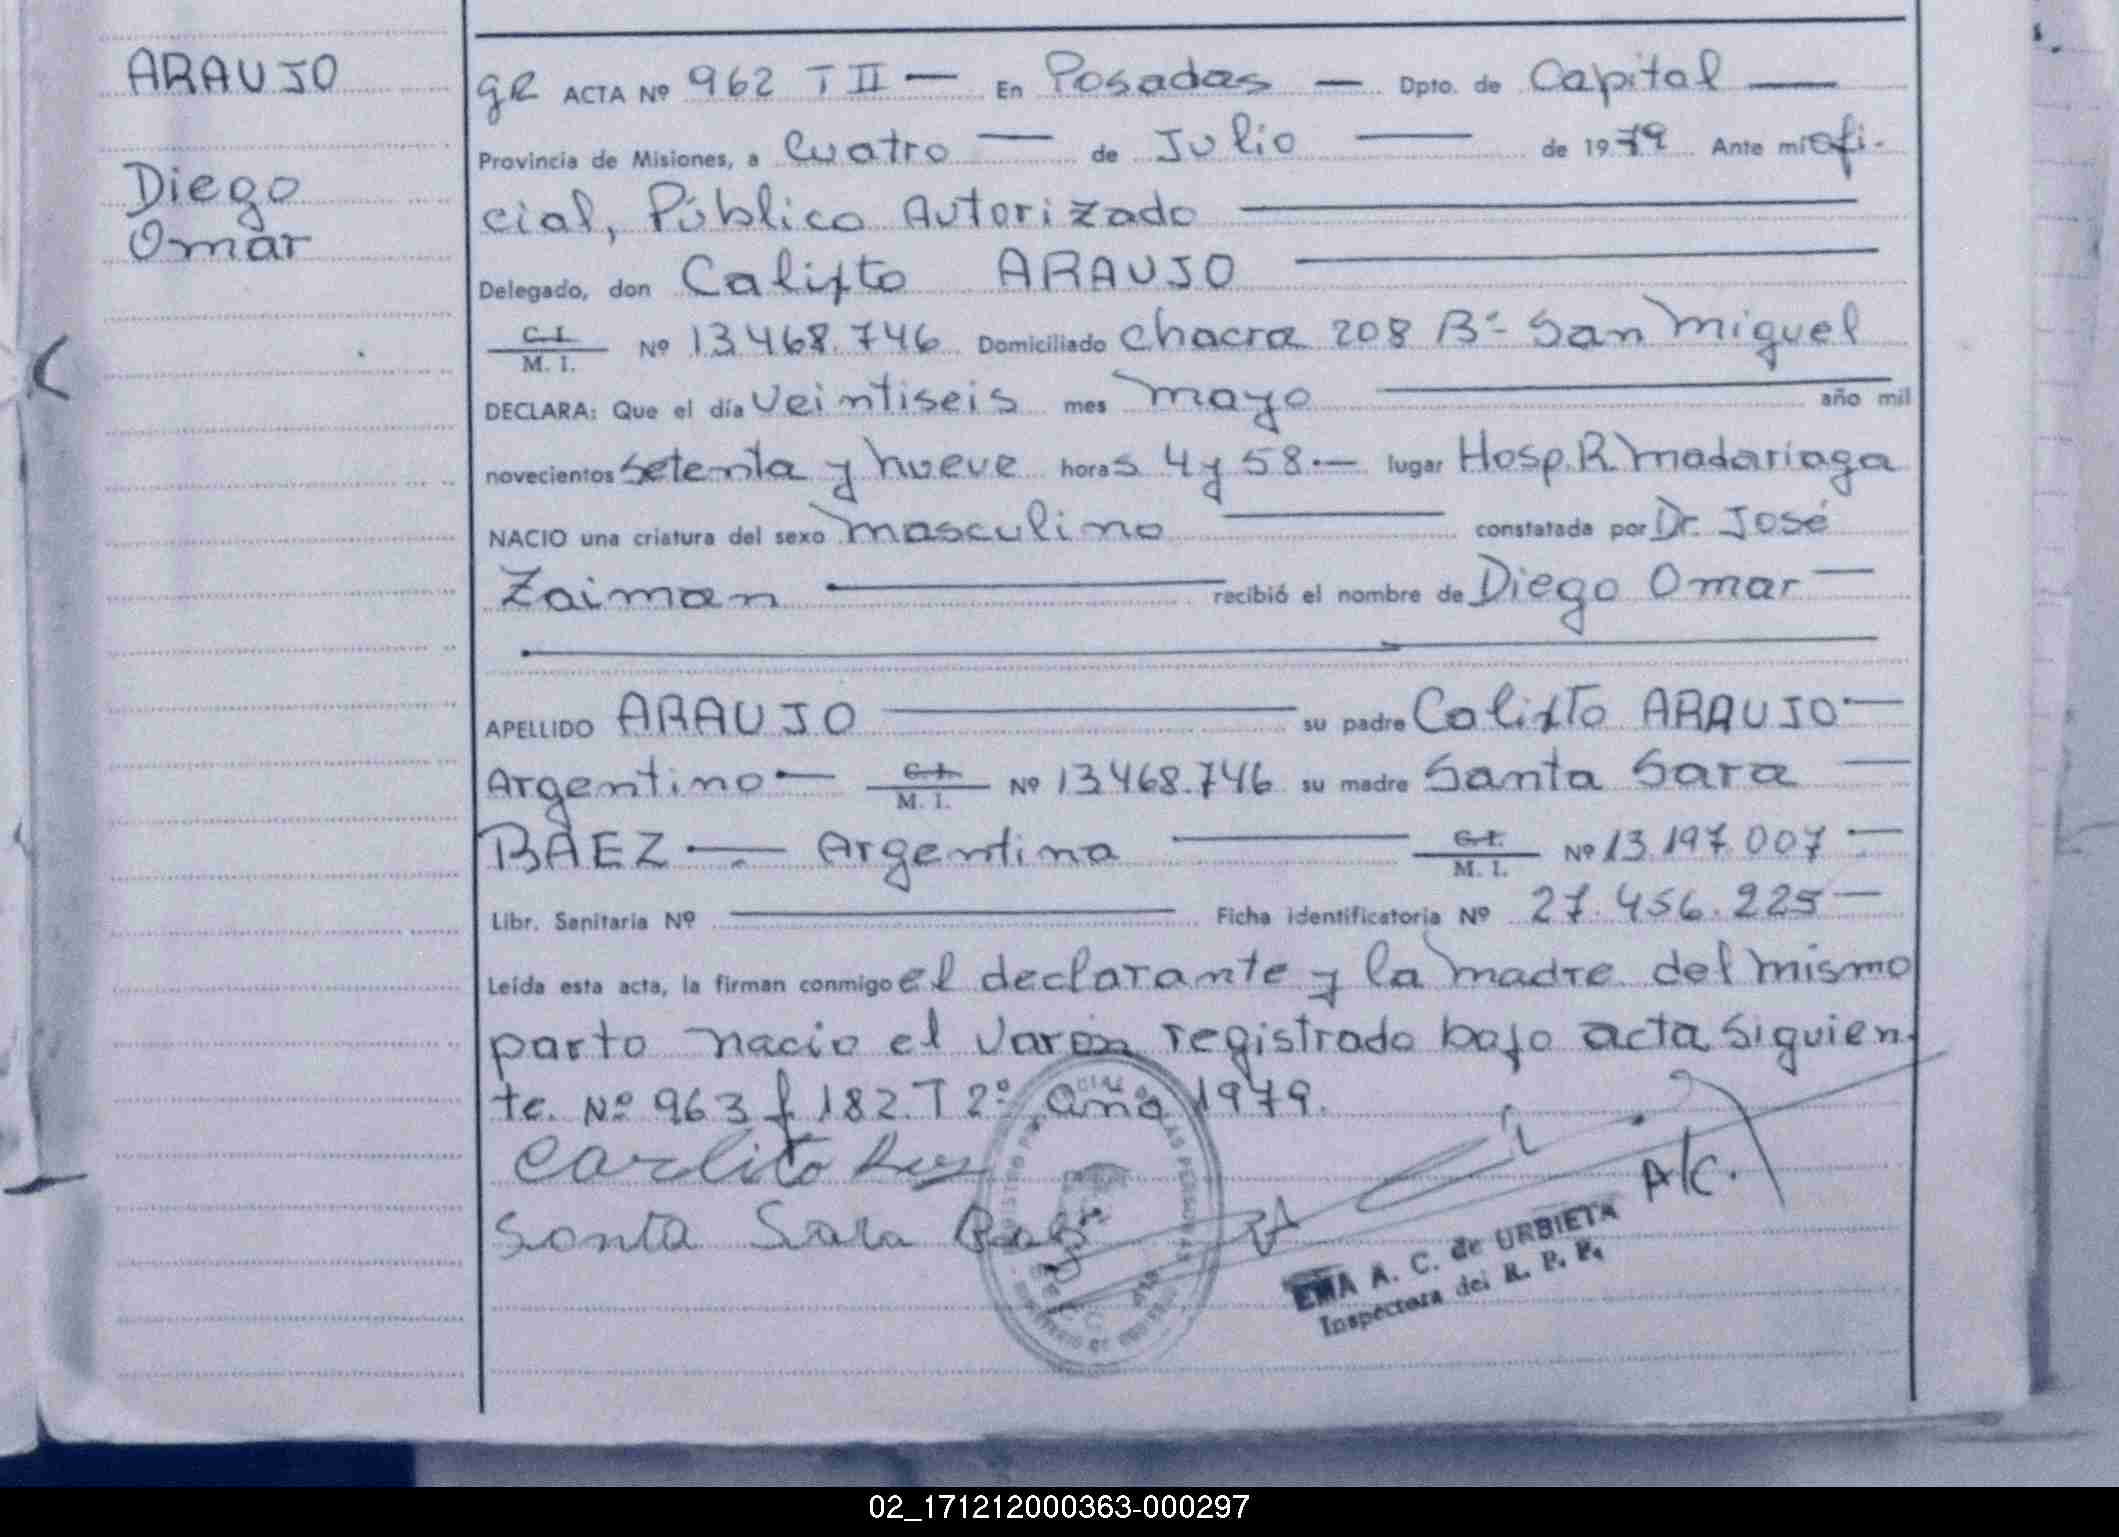 ARAUJO
Diego
Omar
gR ACTA Nº 962 T II — En Posadas — Dpto. de Capital —
Provincia de Misiones, a Cuatro — de Julio — de 1979 Ante mí ofi-
cial, Público Autorizado —
Delegado, don Calixto ARAUJO —
C.I.
M. I. Nº 13468.746 Domiciliado Chacra 208 Bº San Miguel
DECLARA: Que el día Veintiseis mes mayo — año mil
novecientos setenta y nueve horas 4 y 58.— lugar Hosp. R. Madariaga
NACIO una criatura del sexo masculino — constatada por Dr. José
Zaiman — recibió el nombre de Diego Omar —
APELLIDO ARAUJO — su padre Calixto ARAUJO —
Argentino — C.I. M. I. Nº 13468.746 su madre Santa Sara —
BAEZ — Argentina — C.I. M. I. Nº 13.197.007 —
Libr. Sanitaria Nº — Ficha identificatoria Nº 27.456.225 —
Leída esta acta, la firman conmigo el declarante y la madre del mismo
parto nacio el varon registrado bajo acta siguien
te. Nº 963 f 182. T 2º año 1979.
Santa Sara Baez
A/C.
EMA A. C. de URBIETA
Inspectora del R. P. P.
02_171212000363-000297